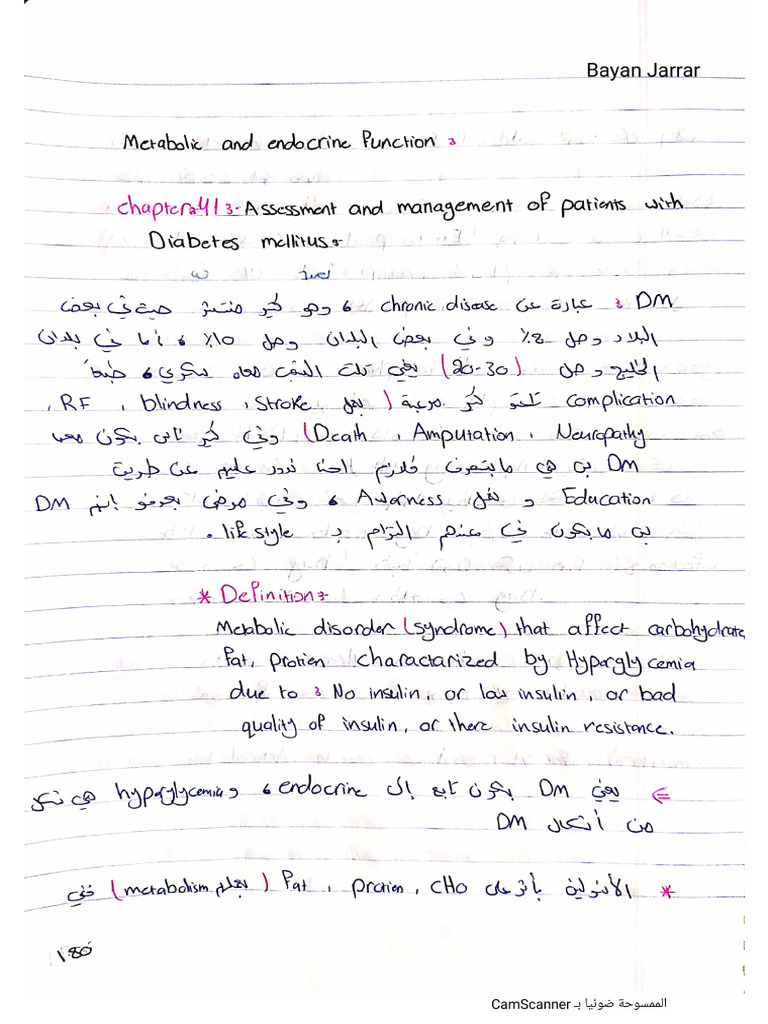 Bayan Jarrar
Metabolic and endocrine Function :
chapter 41 :- Assessment and management of patients with
Diabetes mellitus :-
DM : عبارة عن chronic disease ، وهو كثير منتشر حيث في بعض
البلاد وصل 8% وفي بعض البلدان وصل 10% ، أما في بلدان
الخليج وصل (20-30) يعني تلت الشعب معاه سكري ، طبعاً
complication تاعتو كثير مرعبة (مثل Stroke ، blindness ، RF ،
Neuropathy ، Amputation ، Death) وفي كثير ناس بكون معها
DM بس هي ما بتعرف فلازم احنا ندور عليهم عن طريق
Education و نعمل Awarness ، وفي مرضى بعرفو إنهم DM
بس ما بكون في عندهم التزام بـ life style .
* Definition :-
Metabolic disorder (syndrome) that affect carbohydrate,
fat, protien charactarized by Hyperglycemia
due to : No insulin, or low insulin, or bad
quality of insulin, or there insulin resistance.
<= يعني DM بكون تابع إلى endocrine ، و hyperglycemia هي شكل
من أشكال DM
* الأنسولين بأثر على CHO ، protien ، fat (بعملهم metabolism) ففي
180
الممسوحة ضوئيا بـ CamScanner